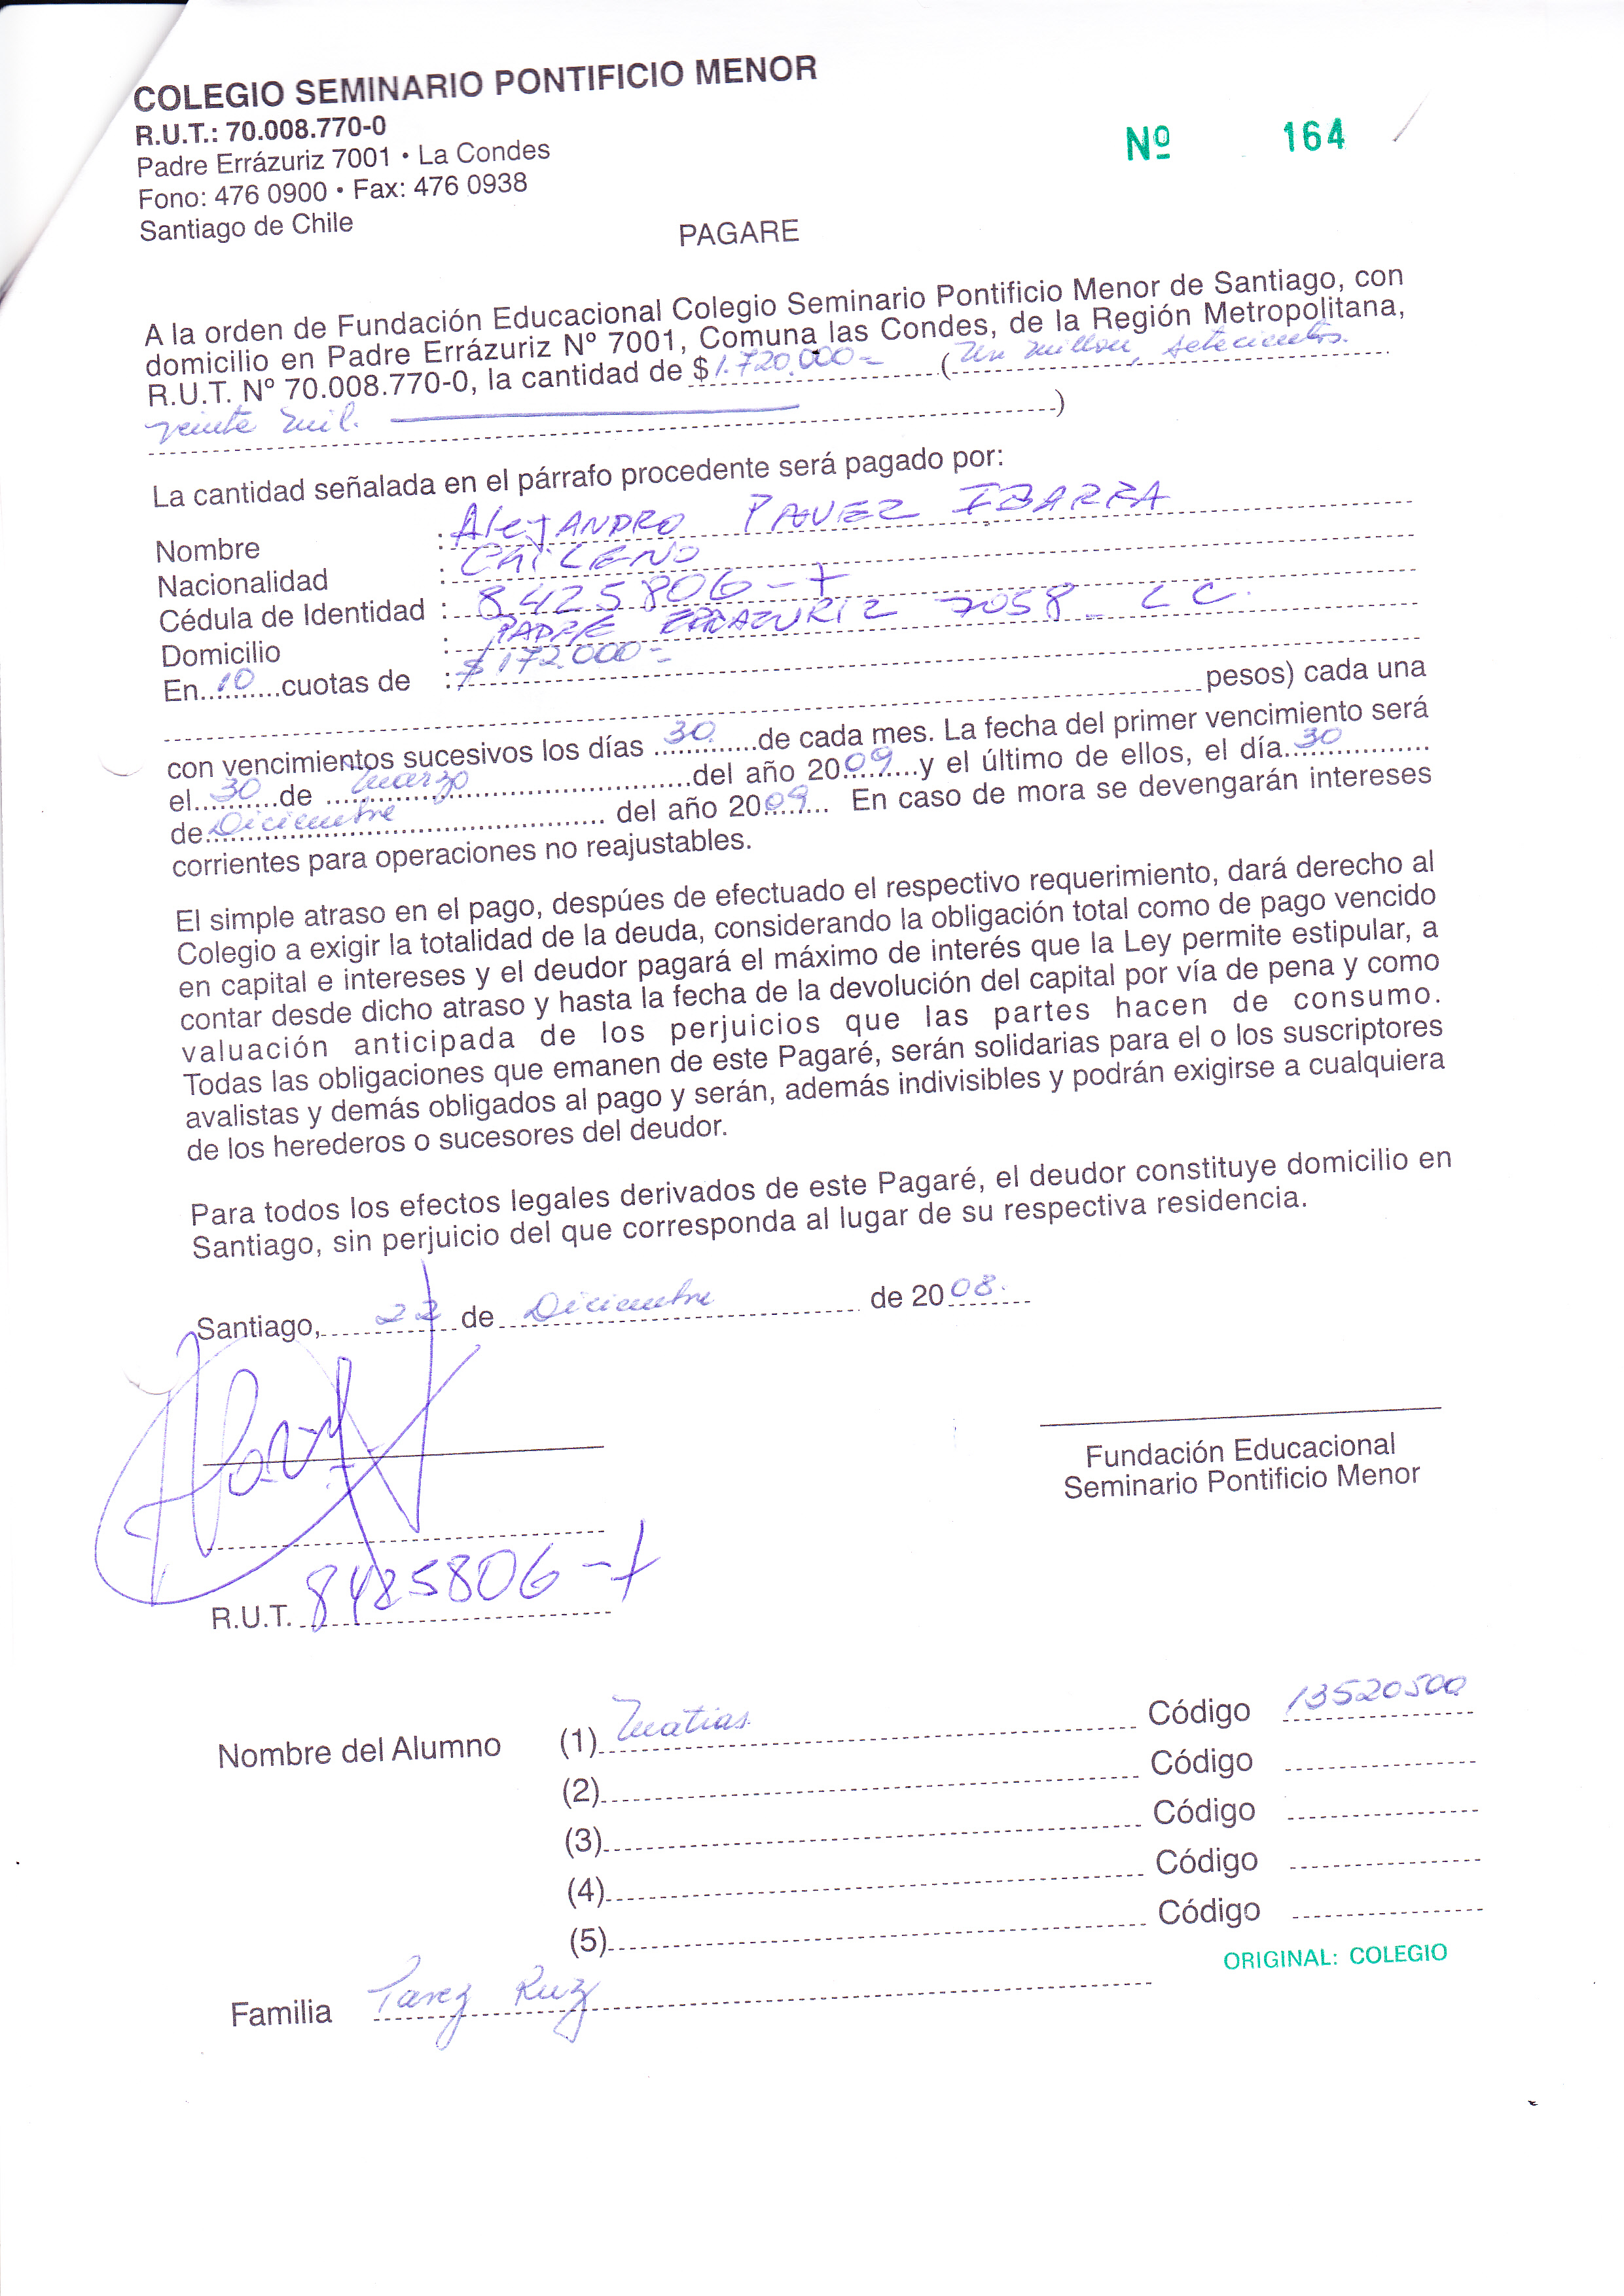 COLEGIO SEMINARIO PONTIFICIO MENOR
R.U.T.: 70.008.770-0
Padre Errázuriz 7001 • La Condes
Fono: 476 0900 • Fax: 476 0938
Santiago de Chile
Nº 164
PAGARE
A la orden de Fundación Educacional Colegio Seminario Pontificio Menor de Santiago, con
domicilio en Padre Errázuriz Nº 7001, Comuna las Condes, de la Región Metropolitana,
R.U.T. Nº 70.008.770-0, la cantidad de $ 1.720.000= (Un millon, setecientos.
veinte mil. )
La cantidad señalada en el párrafo procedente será pagado por:
Nombre : AlejANDRO PAVEZ IBARRA
Nacionalidad : CHILENO
Cédula de Identidad : 8425806-7
Domicilio : PADRE ERRAZURIZ 7058_ L C.
En 10 cuotas de : $ 172.000=
pesos) cada una
con vencimientos sucesivos los días 30. de cada mes. La fecha del primer vencimiento será
el 30 de Marzo del año 2009 y el último de ellos, el día 30
de Diciembre del año 2009 En caso de mora se devengarán intereses
corrientes para operaciones no reajustables.
El simple atraso en el pago, despúes de efectuado el respectivo requerimiento, dará derecho al
Colegio a exigir la totalidad de la deuda, considerando la obligación total como de pago vencido
en capital e intereses y el deudor pagará el máximo de interés que la Ley permite estipular, a
contar desde dicho atraso y hasta la fecha de la devolución del capital por vía de pena y como
valuación anticipada de los perjuicios que las partes hacen de consumo.
Todas las obligaciones que emanen de este Pagaré, serán solidarias para el o los suscriptores
avalistas y demás obligados al pago y serán, además indivisibles y podrán exigirse a cualquiera
de los herederos o sucesores del deudor.
Para todos los efectos legales derivados de este Pagaré, el deudor constituye domicilio en
Santiago, sin perjuicio del que corresponda al lugar de su respectiva residencia.
Santiago, 22 de Diciembre de 2008.
Fundación Educacional
Seminario Pontificio Menor
R.U.T. 8425806-7
Nombre del Alumno (1) Matias Código 13520500
(2) Código
(3) Código
(4) Código
(5) Código
ORIGINAL: COLEGIO
Familia Pavez Ruz